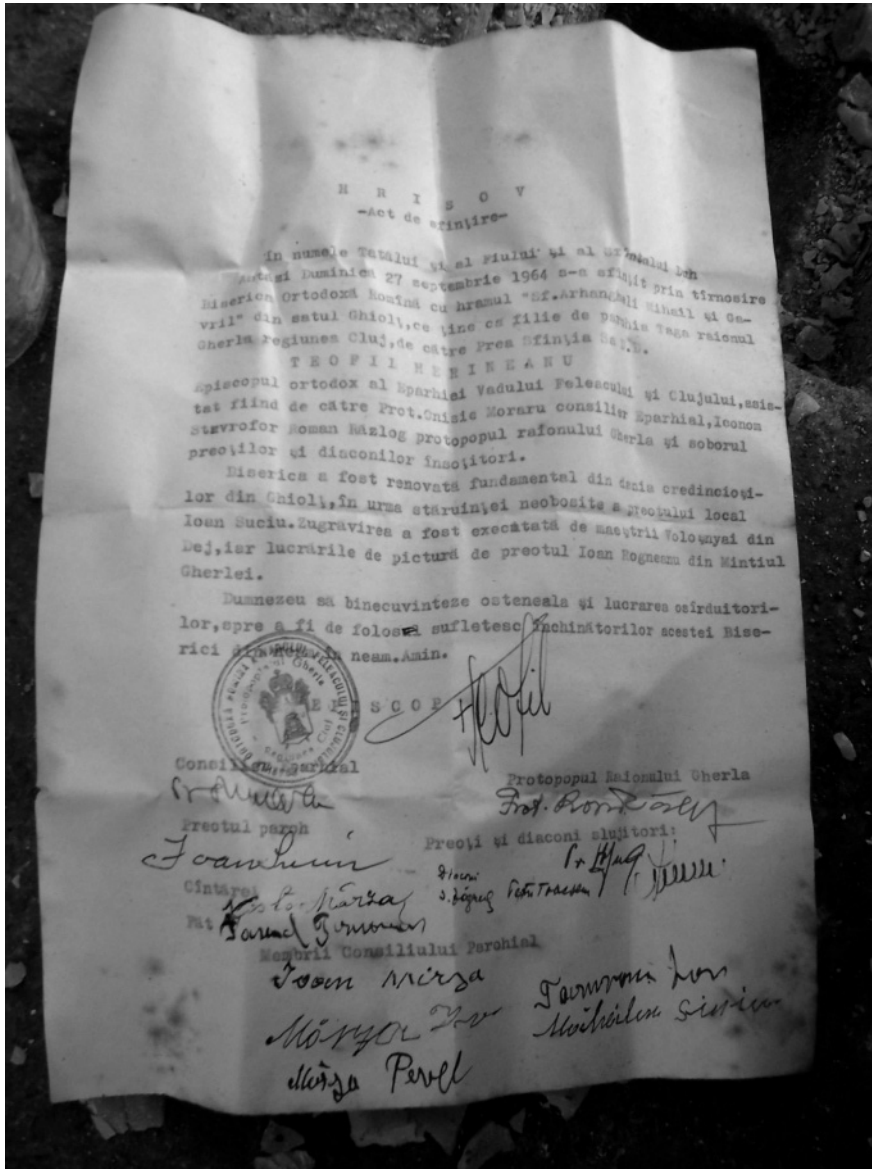 H R I S O V
-Act de sfințire-
În numele Tatălui și al Fiului și al Sfîntului Duh
Astăzi Duminica 27 septembrie 1964 s-a sfințit prin tîrnosire
Biserica Ortodoxă Romînă cu hramul "Sf.Arhangheli Mihail și Ga-
vril" din satul Ghiolț,ce ține ca filie de parohia Țaga raionul
Gherla regiunea Cluj,de către Prea Sfinția Sa,
T E O F I L H E R I N E A N U
Episcopul ortodox al Eparhiei Vadului Feleacului și Clujului,asis-
tat fiind de către Prot.Onisie Moraru consilier Eparhial,Iconom
Stavrofor Roman Răzlog protopopul raionului Gherla și soborul
preoților și diaconilor însoțitori.
Biserica a fost renovată fundamental din dania credincioși-
lor din Ghiolț,în urma stăruinței neobosite a preotului local
Ioan Suciu.Zugrăvirea a fost executată de maeștrii din
Dej,iar lucrările de pictură de preotul Ioan Rogneanu din Mintiul
Gherlei.
Dumnezeu să binecuvinteze osteneala și lucrarea osîrduitori-
lor,spre a fi de folos sufletesc închinătorilor acestei Bise-
rici din neam în neam.Amin.
E P I S C O P
+Teofil
Protopopiatul Gherla
regiunea Cluj
Consilieru Eparhial
Protopopul Raionului Gherla
Prot.
Preotul paroh
Preoți și diaconi slujitori:
Ioan Suciu
Diaconi
Pr.
Cîntăreț
Mârza
Făt
Membrii Consiliului Parohial
Ioan Mirza
Ion
Mârza
Mârza Pavel